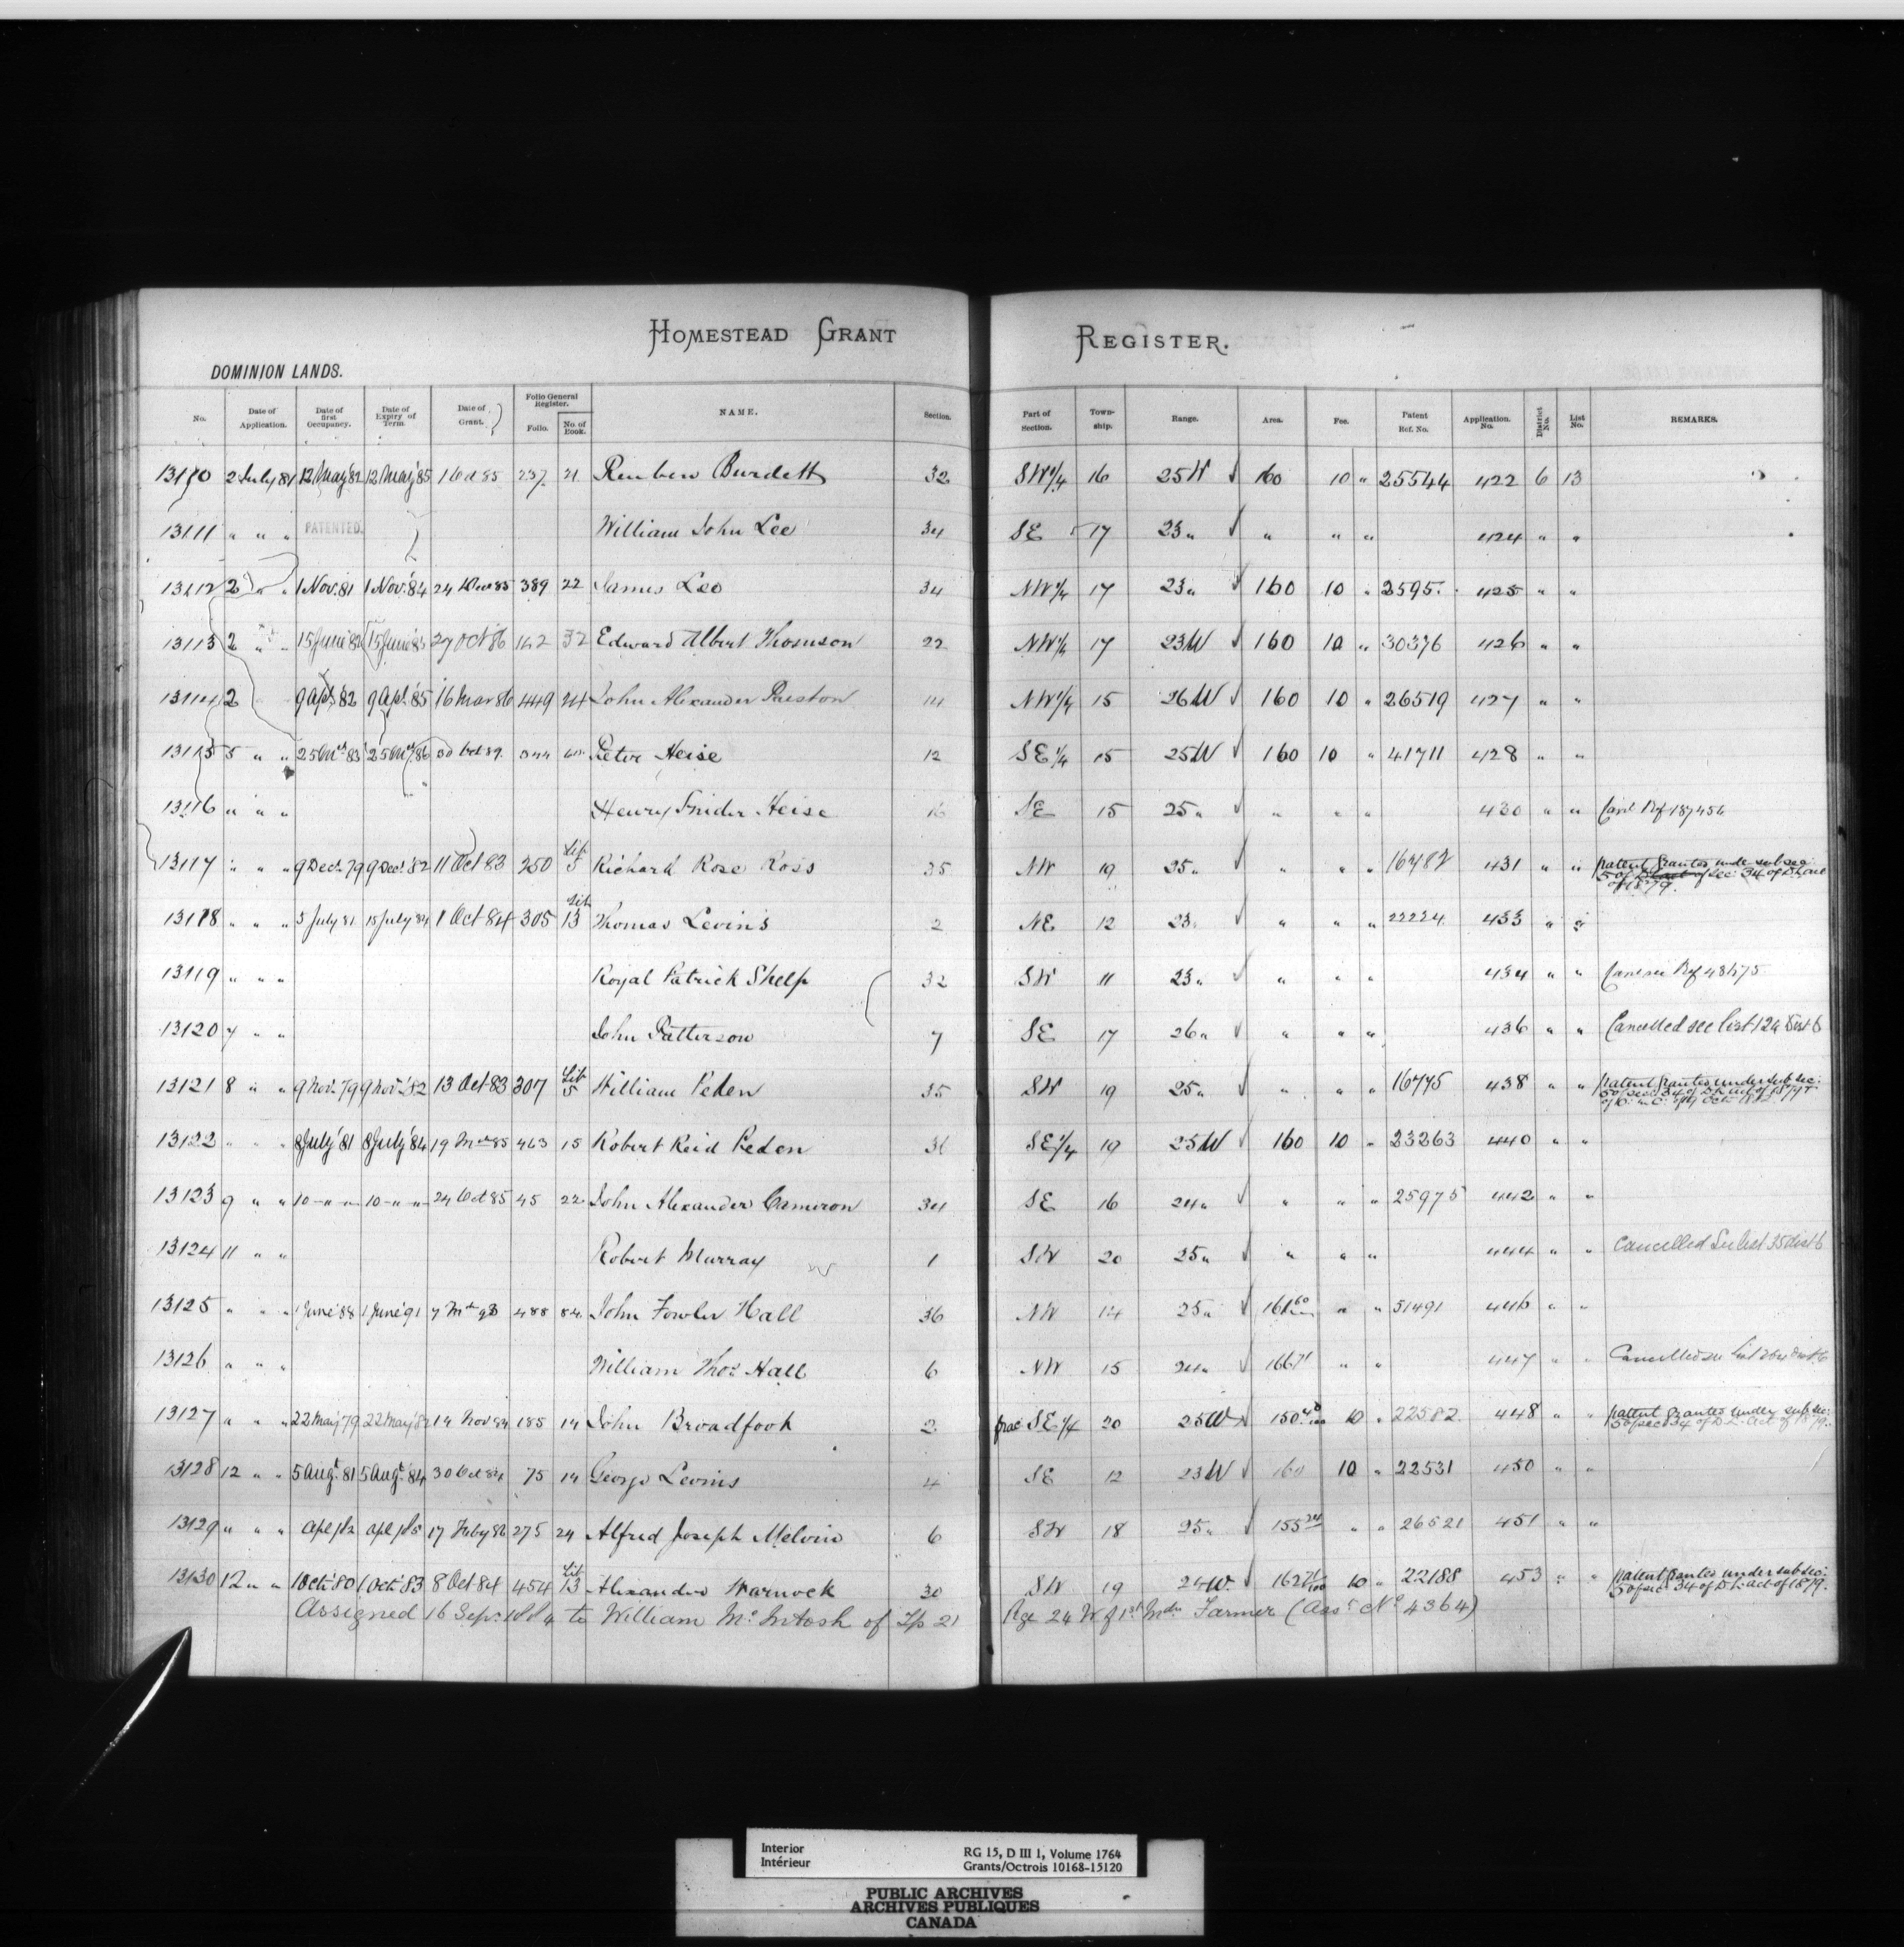 HOMESTEAD GRANT REGISTER.
DOMINION LANDS.
No. Date of Application. Date of first Occupancy. Date of Expiry of Term. Date of Grant. Folio General Register. Folio. No. of Book. NAME. Section. Part of Section. Town-ship. Range. Area. Fee. Patent Ref. No. Application No. District No. List No. REMARKS.
13110 2 July 81 12 May 82 12 May '85 1 Oct 85 237 21 Reuben Burdett 32 SW 1/4 16 25 W 160 10 " 25544 422 6 13
13111 " " " PATENTED. William John Lee 34 SE 17 23 " " " " 424 " "
13112 2 " " 1 Nov. 81 1 Nov. '84 24 85 389 22 James Lee 34 NW 1/4 17 23 " 160 10 " 2595 425 " "
13113 2 " " 15 June '82 15 June '85 27 Oct '86 162 32 Edward Albert Thomson 22 NW 1/4 17 23 W 160 10 " 30376 426 " "
13114 2 9 Apl. 82 9 Apl. '85 16 Mar 86 449 24 John Alexander Preston 14 NW 1/4 15 26 W 160 10 " 26519 427 " "
13115 5 " " 25 Mch 83 25 Mch 86 30 Oct 89 Peter Heise 12 SE 1/4 15 25 W 160 10 " 41711 428 " "
13116 " " " Henry Snider Heise 16 SE 15 25 " " " " 430 " " Canl Ref 187456
13117 " " " 9 Dec. 79 9 Dec. '82 11 Oct 83 250 Lib 5 Richard Rose Ross 35 NW 19 25 " " " 16782 431 " " Patent Grantes under sub sec: 5 of sec: 34 of D L act of 1879.
13118 " " " 5 July 81 15 July 84 1 Oct 84 305 Lib 13 Thomas Levins 2 NE 12 23 " " " " 22224 433 " "
13119 " " " Royal Patrick Shelp 32 SW 11 23 " " " " 434 " " Ref 48475
13120 7 " " John Patterson 7 SE 17 26 " " " " 436 " " Cancelled see list 124 Dist 6
13121 8 " " 9 Nov. 79 9 Nov. '82 13 Oct 83 307 Lib 5 William Peden 35 SW 19 25 " " " " 16775 438 " " Patent Grantes under sub sec: 5 of sec: 34 of D L act of 1879
13122 " " " 8 July '81 8 July '84 19 Mch 85 463 15 Robert Reid Peden 36 SE 1/4 19 25 W 160 10 " 23263 440 " "
13123 9 " " 10 " " 10 " " 24 Oct 85 45 22 John Alexander Cameron 34 SE 16 24 " " " " 25975 442 " "
13124 11 " " Robert Murray 1 SW 20 25 " " " " 444 " " Cancelled See list 35 dist 6
13125 " " " 1 June '88 1 June '91 7 Mch 93 488 84 John Fowler Hall 36 NW 14 25 " 161 60 " " 51491 446 " "
13126 " " " William Thos. Hall 6 NW 15 24 " 166 71 " " 447 " " Cancelled see List 264 Dist 6
13127 " " " 22 May 79 22 May 82 14 Nov 84 185 14 John Broadfoot 2 frac SE 1/4 20 25 W 150 40/100 10 " 22582 448 " " Patent Grantes under sub sec: 5 of sec 34 of D. L. act of 1879.
13128 12 " " 5 Augt. 81 5 Augt. '84 30 Oct 84 75 14 George Levins 4 SE 12 23 W 160 10 " 22531 450 " "
13129 " " " Apl 1/82 Apl 1/85 17 Feby 86 275 24 Alfred Joseph Melvin 6 SW 18 25 " 155 24 " " 26521 451 " "
13130 12 " " 1 Oct. 80 1 Oct. '83 8 Oct 84 454 Lib 13 Alexander Warnock 30 SW 19 24 W. 162 71/100 10 " 22188 453 " " Patent Grantes under sub sec: 5 of sec 34 of D. L. act of 1879.
Assigned 16 Sep. 1884 to William McIntosh of Tp 21 Rge 24 W of 1st Mdn Farmer (Asst. No. 4364)
Interior
Intérieur
RG 15, D III 1, Volume 1764
Grants/Octrois 10168-15120
PUBLIC ARCHIVES
ARCHIVES PUBLIQUES
CANADA